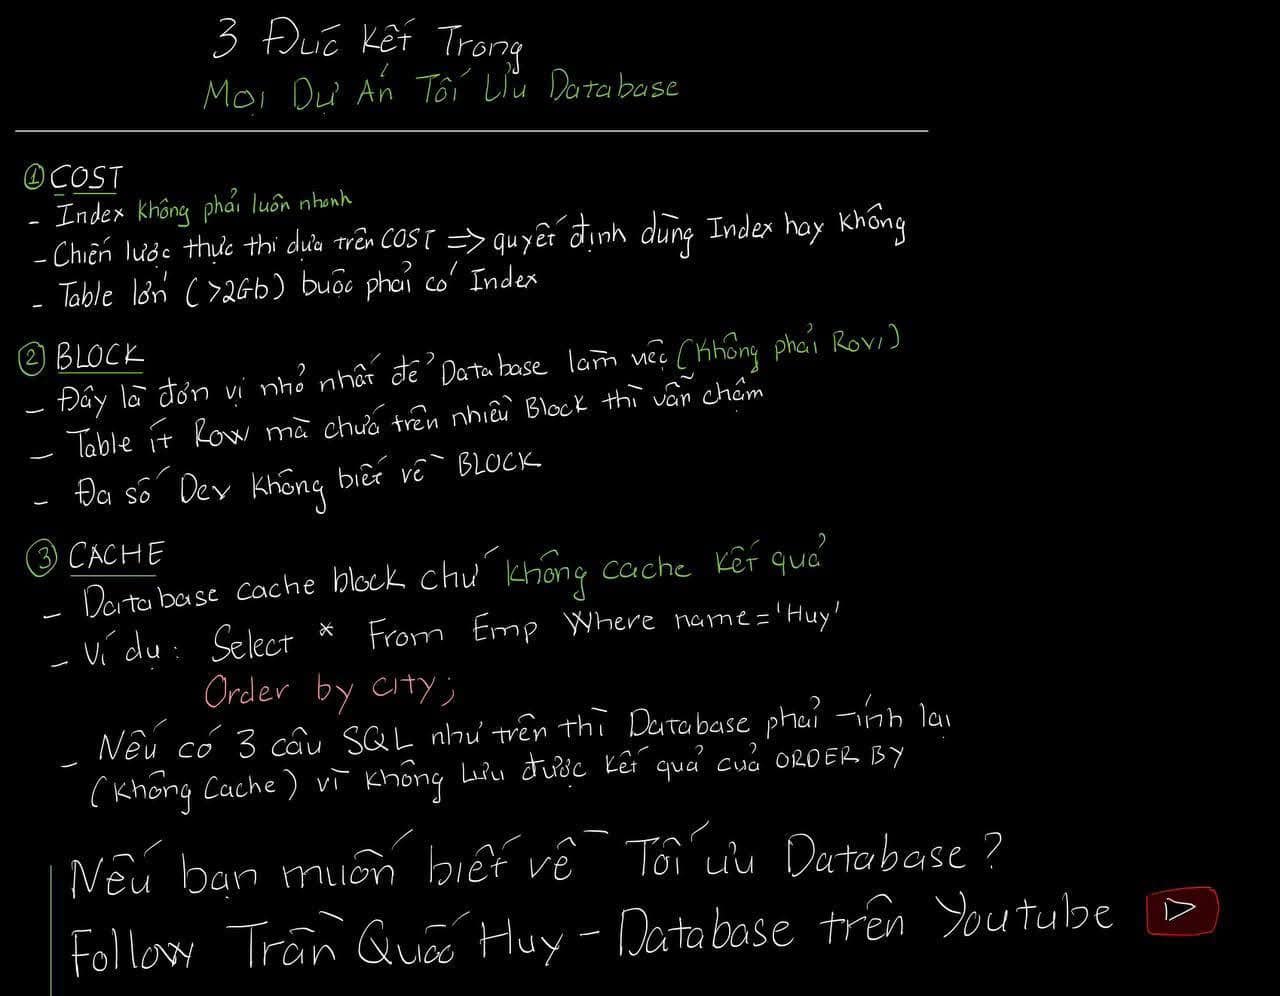 3 Đúc Kết Trong
Mọi Dự Án Tối Ưu Database
① COST
- Index không phải luôn nhanh
- Chiến lược thực thi dựa trên COST => quyết định dùng Index hay không
- Table lớn (>2Gb) buộc phải có Index
② BLOCK
- Đây là đơn vị nhỏ nhất để Database làm việc (không phải Row)
- Table ít Row mà chứa trên nhiều Block thì vẫn chậm
- Đa số Dev không biết về BLOCK
③ CACHE
- Database cache block chứ không cache kết quả
- Ví dụ: Select * From Emp Where name='Huy'
Order by city;
- Nếu có 3 câu SQL như trên thì Database phải tính lại
(không Cache) vì không lưu được kết quả của ORDER BY
Nếu bạn muốn biết về Tối ưu Database?
Follow Trần Quốc Huy - Database trên Youtube